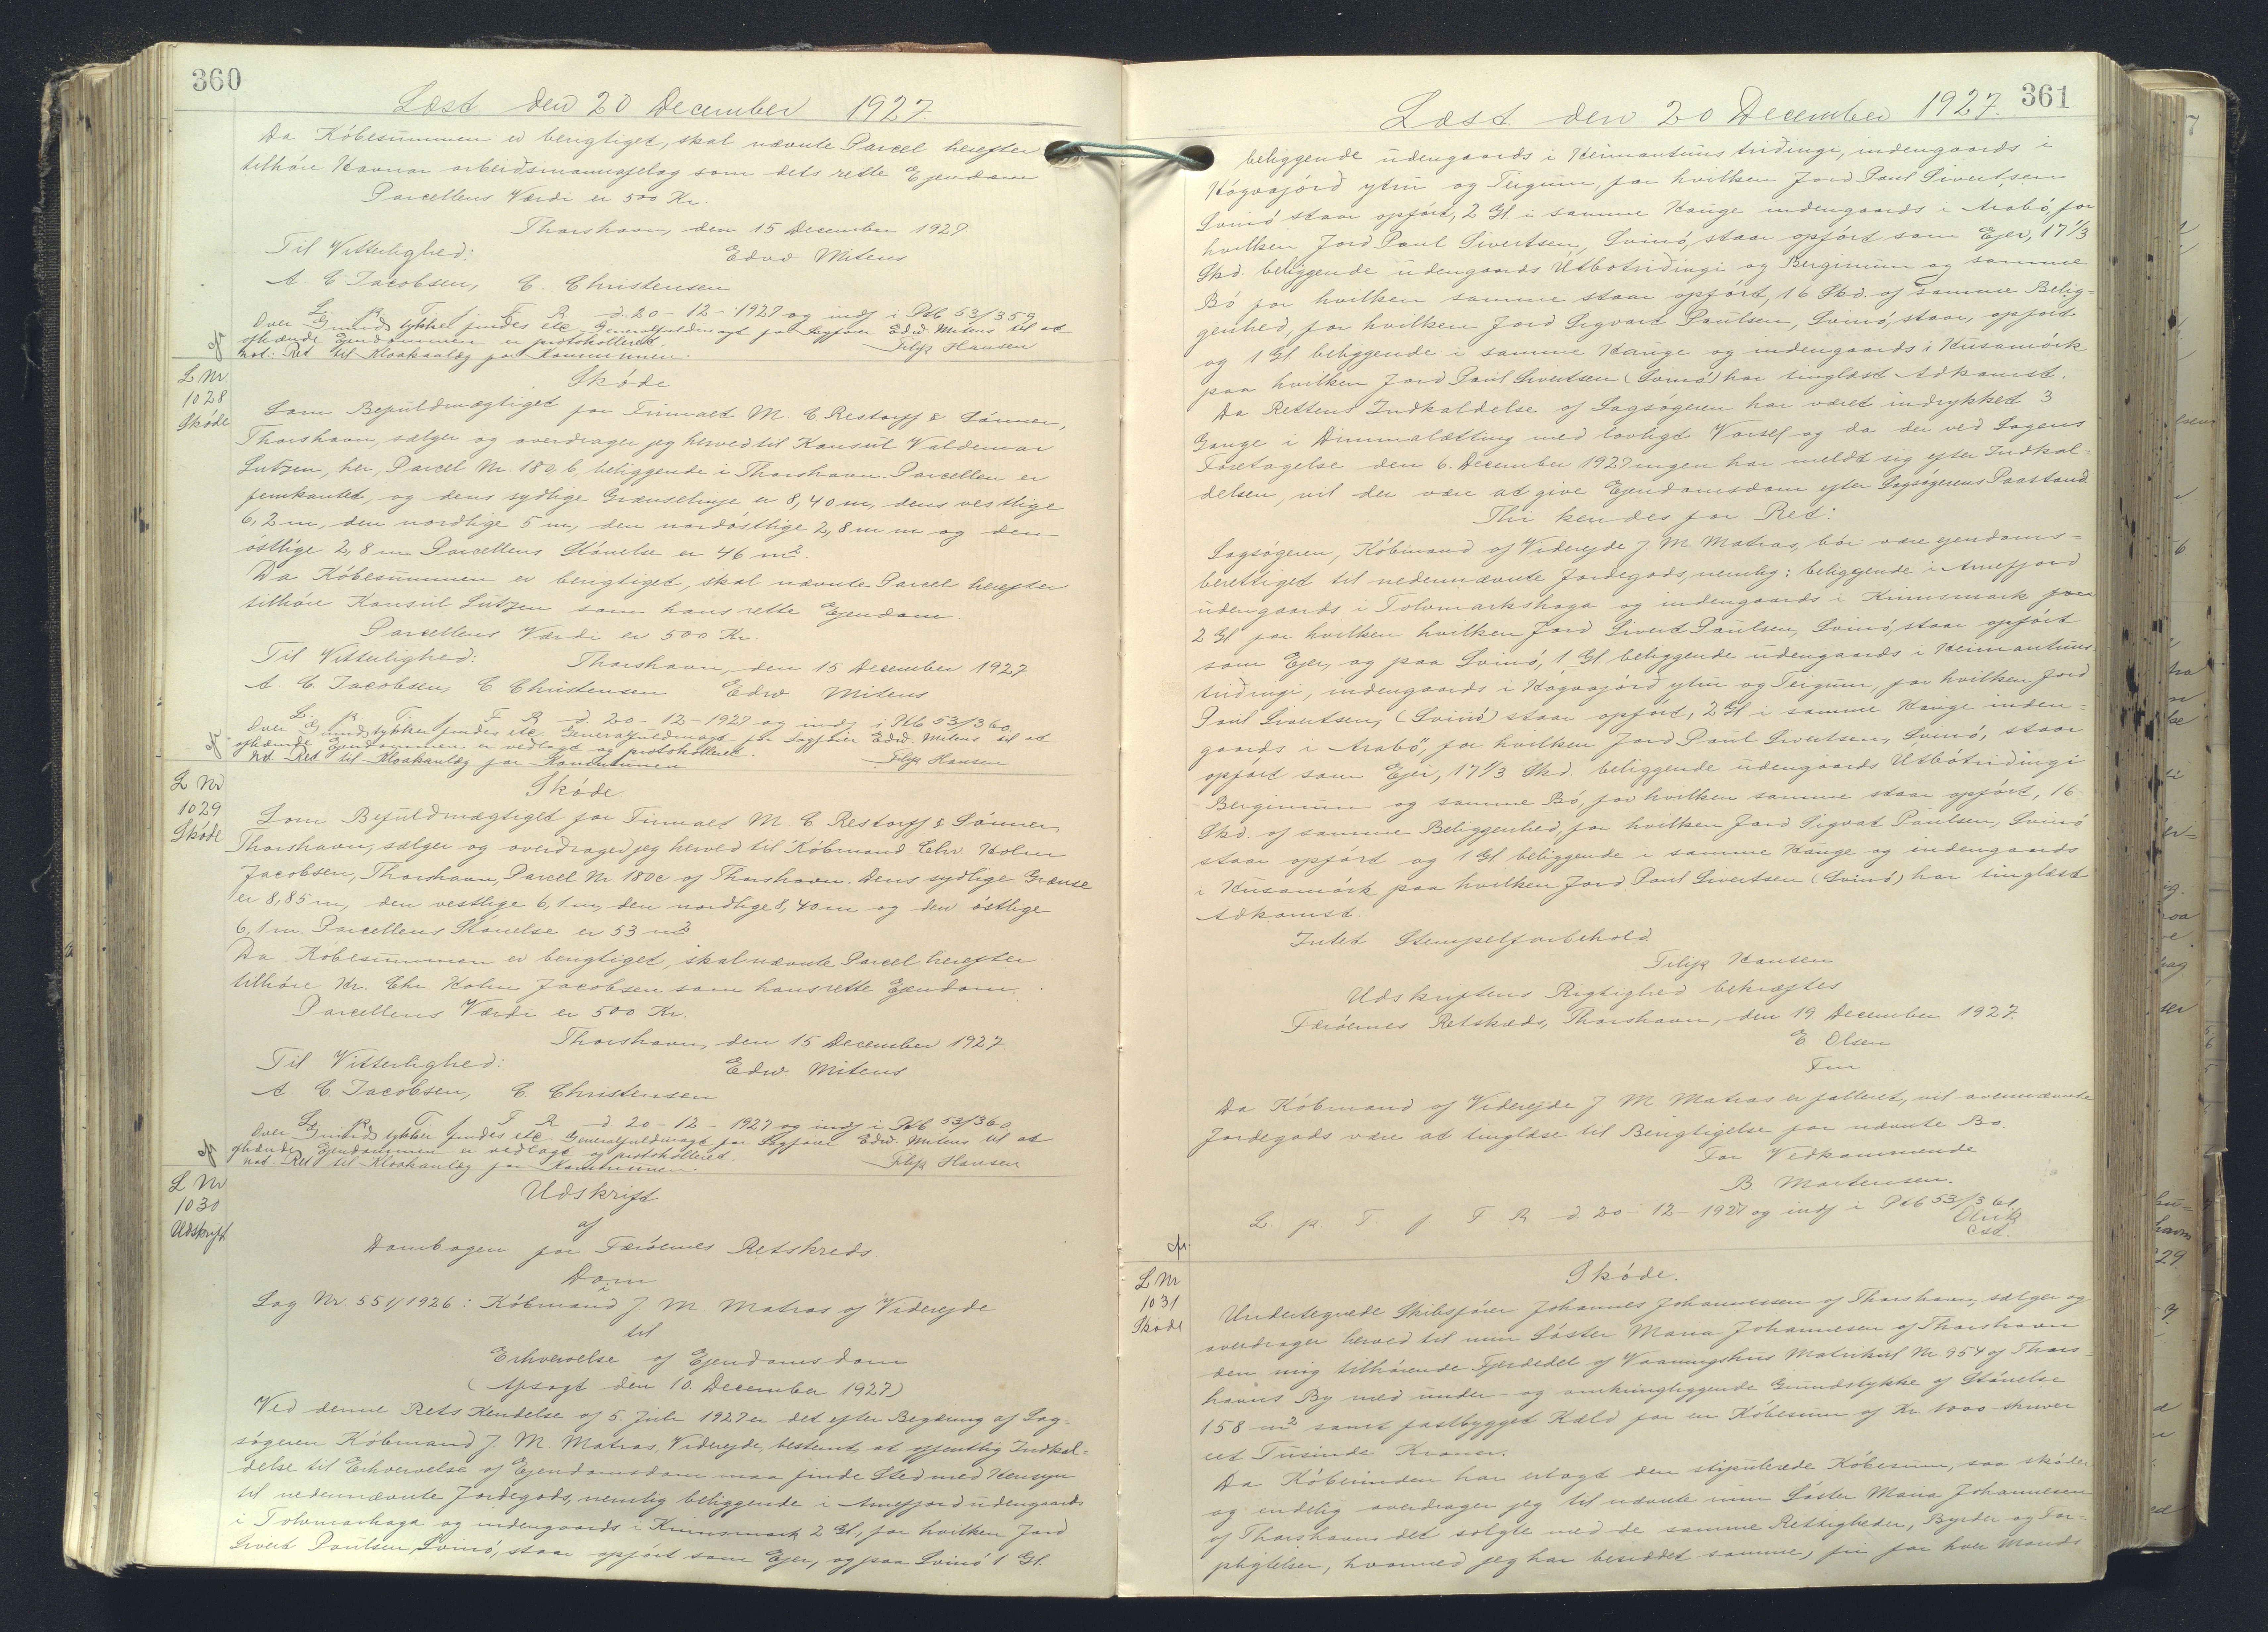 360
Læst den 20 December 1927.
Da Köbesummen er berigtiget, skal nævnte Parcel herefter
tilhöre Havnar arbeidsmannafelag som dets rette Ejendom
Parcellens Værdi er 500 Kr.
Thorshavn, den 15 December 1927
Til Vitterlighed: Edvd Mitens
A. C. Jacobsen, C. Christensen
L. p. T. f. F. R. d. 20-12-1927 og indf i Ptb 53/359
Over Grundstykket findes etc Generalfuldmagt for Sagfører Edw. Mitens til at
afhænde Ejendommen er protokolleret.
not: Ret til Kloakanlæg for Kommunen. Filip Hansen
cfr
L Nr
1028
Sköde
Sköde
Som Befuldmægtiget for Firmaet M. C. Restorff & Sönner,
Thorshavn, sælger og overdrager jeg herved til Konsul Valdemar
Lützen, her, Parcel Nr. 180 b, beliggende i Thorshavn. Parcellen er
femkantet, og dens sydlige Grænselinje er 8,40 m, dens vestlige
6,2 m, den nordlige 5 m, den nordöstlige 2,8 m m og den
östlige 2,8 m Parcellens Störrelse er 46 m².
Da Köbesummen er berigtiget, skal nævnte Parcel herefter
tilhöre Konsul Lützen som hans rette Ejendom.
Parcellens Værdi er 500 Kr.
Til Vitterlighed: Thorshavn, den 15 December 1927
A. C. Jacobsen, C Christensen Edw. Mitens
L. p. T. f. F. R. d. 20-12-1927 og indf i Ptb 53/360
Over Grundstykket findes etc. Generalfuldmagt for Sagfører Edw. Mitens til at
afhænde Ejendommen er vedlagt og protokolleret.
not. Ret til Kloakanlæg for Kommunen Filip Hansen
cfr
L Nr
1029
Sköde
Sköde.
Som Befuldmægtiget for Firmaet M. C. Restorff & Sönner,
Thorshavn, sælger og overdrager jeg herved til Köbmand Chr. Holm
Jacobsen, Thorshavn, Parcel Nr. 180c af Thorshavn. Dens sydlige Grænse
er 8,85 m, den vestlige 6,1 m, den nordlige 8,40 m og den östlige
6,1 m. Parcellens Störrelse er 53 m²
Da Köbesummen er berigtiget, skal nævnte Parcel herefter
tilhöre Hr. Chr. Holm Jacobsen som hans rette Ejendom.
Parcellens Værdi er 500 Kr.
Thorshavn, den 15 December 1927.
Til Vitterlighed: Edw. Mitens
A C. Jacobsen, C. Christensen
L. p. T. f. F. R. d 20-12-1927 og indf i Ptb 53/360
Over Grundstykket findes etc Generalfuldmagt for Sagfører Edw. Mitens til at
afhænde Ejendommen er vedlagt og protokolleret.
not. Ret til Kloakanlæg for Kommunen. Filip Hansen
cfr
L Nr
1030
Udskrift
Udskrift
af
Dombogen for Færöernes Retskreds
Dom
i
Sag Nr. 551/1926: Köbmand J. M. Matras af Viderejde
til
Erhvervelse af Ejendomsdom
(Afsagt den 10. December 1927)
Ved denne Rets Kendelse af 5. Juli 1927 er det efter Begæring af Sag=
sögeren Köbmand J. M. Matras, Viderejde, bestemt, at offentlig Indkal=
delse til Erhvervelse af Ejendomsdom maa finde Sted med Hensyn
til nedennævnte Jordegods, nemlig beliggende i Arnefjord udengaards
i Tolvmarkaga og indengaards i Kunnsmark 2 Gl, for hvilken Jord
Sivert Poulsen, Svinö, staar opfört som Ejer, og paa Svinö 1 Gl.
361
Læst den 20 December 1927.
beliggende udengaards i Heimantuns tridingi, indengaards i
Högvajörd ytru og Teigum, for hvilken Jord Poul Sivertsen
Svinö staar opfört, 2 Gl i samme Hauge indengaards i Arabö, for
hvilken Jord Poul Sivertsen, Svinö, staar opfört som Ejer, 17 1/3
Skd. beliggende udengaards Útbotridingi og Berginum og samme
Bö for hvilken samme staar opfört, 16 Skd. af samme Belig=
genhed, for hvilken Jord Sigvart Poulsen, Svinö, staar, opfört
og 1 Gl beliggende i samme Hauge og indengaards i Húsamörk
paa hvilken Jord Poul Sivertsen (Svinö) har tinglæst Adkomst.
Da Rettens Indkaldelse af Sagsögeren har været indrykket 3
Gange i Dimmalætting med lovligt Varsel og da der ved Sagens
Foretagelse den 6. December 1927 ingen har meldt sig efter Indkal=
delsen, vil der være at give Ejendomsdom efter Sagsögerens Paastand
Thi kendes for Ret:
Sagsögeren, Köbmand af Viderejde J. M. Matras, bör være ejendoms=
berettiget til nedennævnte Jordegods, nemlig: beliggende i Arnefjord
udengaards i Tolvmarkshaga og indengaards i Kunnsmark
2 Gl for hvilken hvilken Jord Sivert Poulsen, Svinö, staar opfört
som Ejer, og paa Svinö, 1 Gl beliggende udengaards i Heimantuns
tridingi, indengaards i Högvajörd ytru og Teigum, for hvilken Jord
Poul Sivertsen, (Svinö) staar opfört, 2 Gl i samme Hauge inden=
gaards i Arabö, for hvilken Jord Poul Sivertsen, Svinö, staar
opfört som Ejer, 17 1/3 Skd. beliggende udengaards Útbótridingi
Berginum og samme Bö, for hvilken samme staar opfört, 16
Skd. af samme Beliggenhed, for hvilken Jord Sigvat Poulsen, Svinö
staar opfört og 1 Gl beliggende i samme Hauge og indengaards
i Húsamörk paa hvilken Jord Poul Sivertsen (Svinö) har tinglæst
Adkomst.
Intet Stempelforbehold
Filip Hansen
Udskriftens Rigtighed bekræftes
Færöernes Retskreds, Thorshavn, den 19 December 1927.
E Olsen
Fm
Da Köbmand af Viderejde J. M. Matras er falleret, vil ovennævnte
Jordegods være at tinglæse til Berigtigelse for nævnte Bo.
For Vedkommende
B Mortensen.
L. p. T. f F R d. 20-12-1927 og indf i Ptb 53/361
cst.
cfr
L Nr
1031
Sköde
Sköde.
Undertegnede Skibsförer Johannes Johannessen af Thorshavn, sælger og
overdrager herved til min Söster Maria Johannesen af Thorshavn
den mig tilhörende Fjerdedel af Vaaningshus Matrikul Nr 954 af Thors=
havns By med under- og omkringliggende Grundstykke af Störrelse
158 m² samt fastbygget Kæld for en Köbesum af Kr 1000 skriver
eet Tusinde Kroner.
Da Köberinden har erlagt den stipulerede Köbesum, saa sköder
og endelig overdrager jeg til nævnte min Söster Maria Johannesen
af Thorshavn det solgte med de samme Rettigheder, Byrder og For=
pligtelser, hvormed jeg har besiddet samme, fri for hver Mands